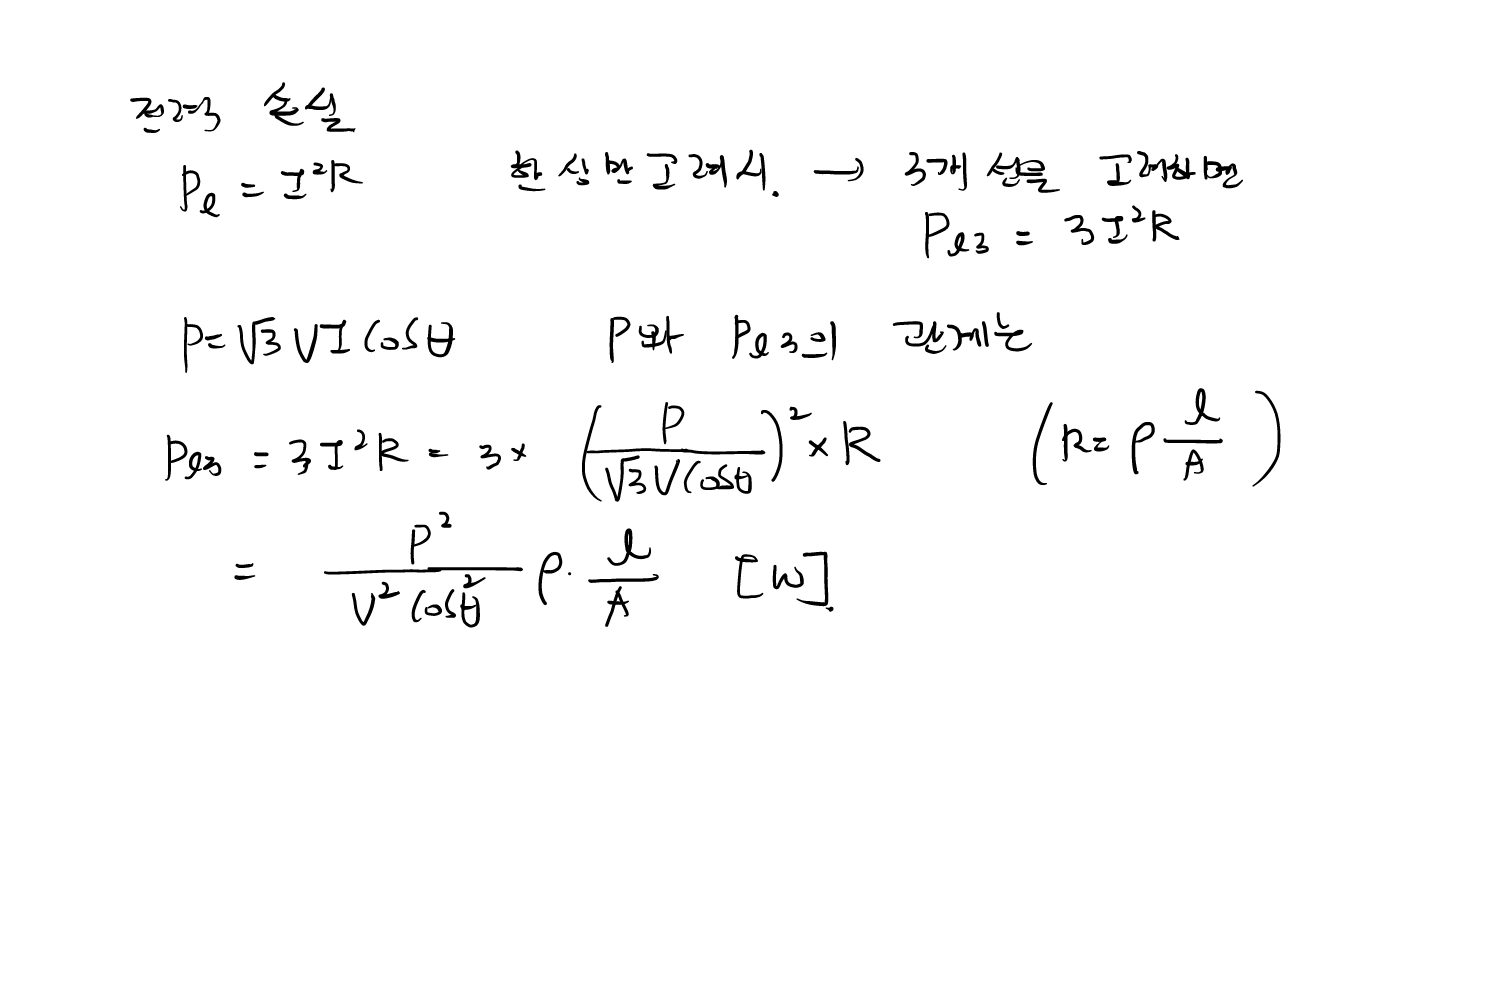 전력 손실
Pℓ = I²R 한 상만 고려시. → 3개 선을 고려하면
Pℓ3 = 3I²R
P = √3 VI cosθ P와 Pℓ3의 관계는
Pℓ3 = 3I²R = 3 × (P / √3 V cosθ)² × R (R = ρ ℓ/A)
= P² / V² cosθ² ρ · ℓ/A [W].